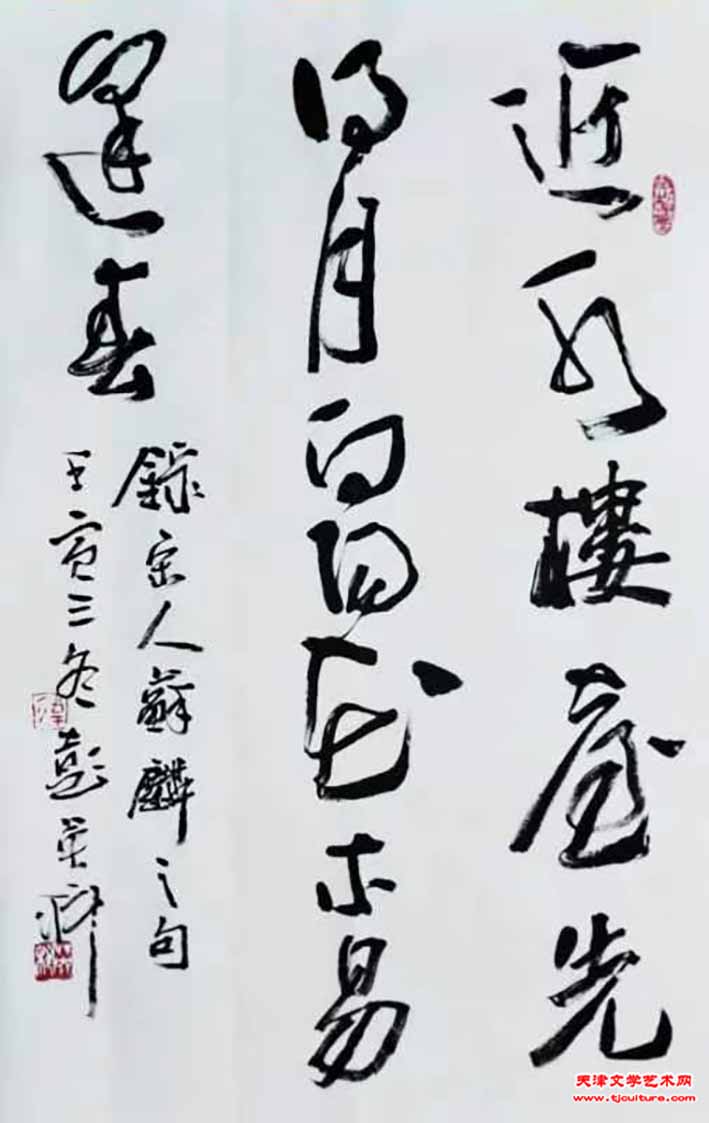 近水樓臺先
得月向陽花木易
逢春
錄宋人蘇麟之句
壬寅三冬彭英
天津文学艺术网
www.tjculture.com